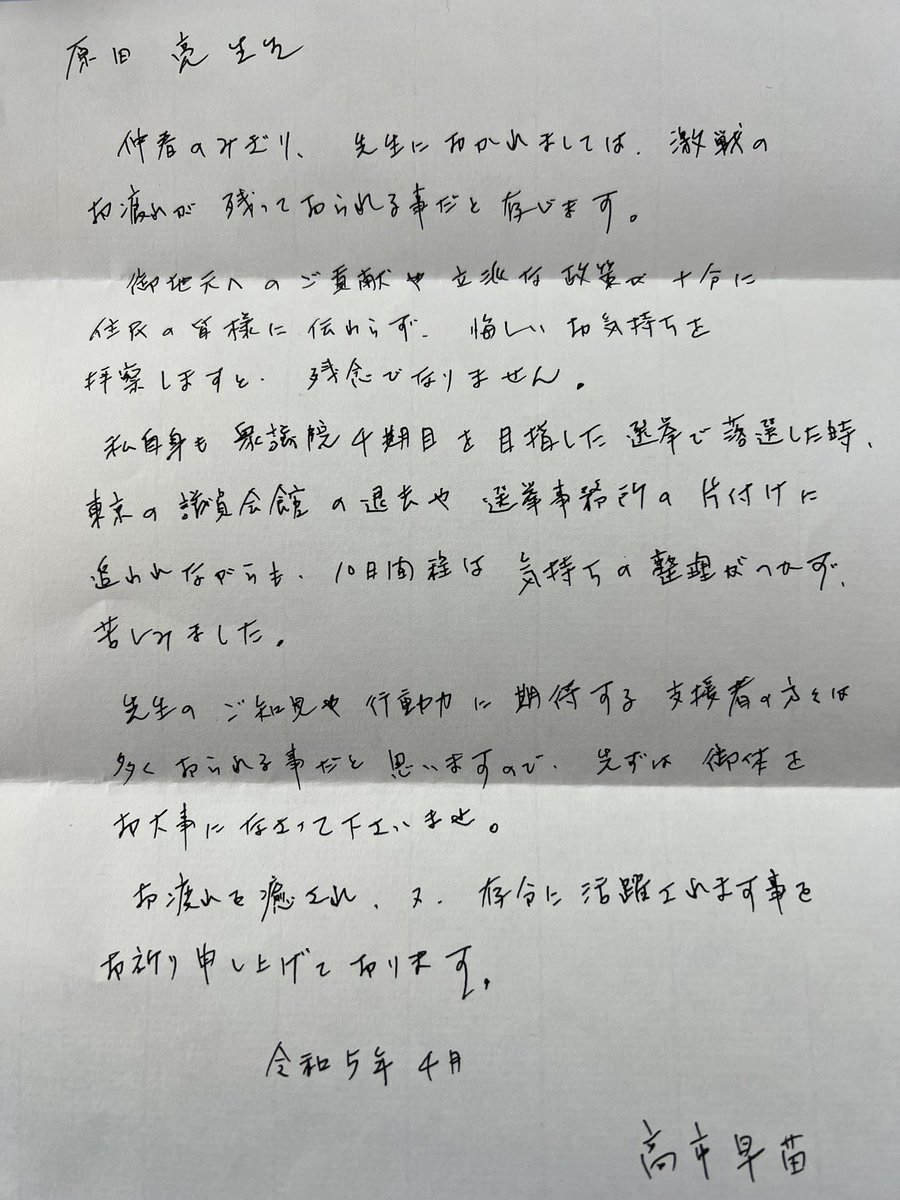 原田 亮先生
仲春のみぎり、先生におかれましては、激戦の
お疲れが残っておられる事だと存じます。
御地元へのご貢献や立派な政策が十分に
住民の皆様に伝わらず、悔しいお気持ちを
拝察しますと、残念でなりません。
私自身も衆議院4期目を目指した選挙で落選した時、
東京の議員会館の退去や選挙事務所の片付けに
追われながらも、10日間程は気持ちの整理がつかず、
苦しみました。
先生のご知見や行動力に期待する支援者の方々は
多くおられる事だと思いますので、先ずは御体を
お大事になさって下さいませ。
お疲れを癒され、又、存分に活躍されます事を
お祈り申し上げております。
令和5年4月
高市早苗